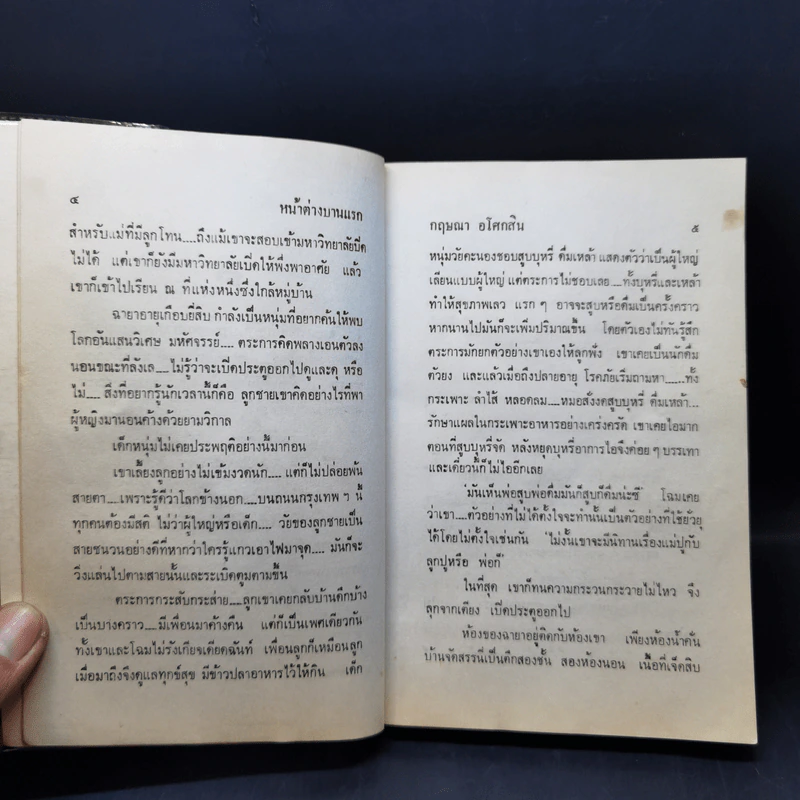 ๔
หน้าต่างบานแรก
สำหรับแม่ที่มีลูกโทน....ถึงแม้เขาจะสอบเข้ามหาวิทยาลัยปิด
ไม่ได้ แต่เขาก็ยังมีมหาวิทยาลัยเปิดให้พึ่งพาอาศัย แล้ว
เขาก็เข้าไปเรียน ณ ที่แห่งหนึ่งซึ่งใกล้หมู่บ้าน
ฉายาอายุเกือบยี่สิบ กำลังเป็นหนุ่มที่อยากค้นให้พบ
โลกอันแสนวิเศษ มหัศจรรย์.... ตระการคิดพลางเอนตัวลง
นอนขณะที่ลังเล....ไม่รู้ว่าจะเปิดประตูออกไปดูและดุ หรือ
ไม่.... สิ่งที่อยากรู้นักเวลานี้ก็คือ ลูกชายเขาคิดอย่างไรที่พา
ผู้หญิงมานอนค้างด้วยยามวิกาล
เด็กหนุ่มไม่เคยประพฤติอย่างนี้มาก่อน
เขาเลี้ยงลูกอย่างไม่เข้มงวดนัก....แต่ก็ไม่ปล่อยพ้น
สายตา....เพราะรู้ดีว่าโลกข้างนอก....บนถนนกรุงเทพ ฯ นี้
ทุกคนต้องมีสติ ไม่ว่าผู้ใหญ่หรือเด็ก.... วัยของลูกชายเป็น
สายชนวนอย่างดีที่หากว่าใครรู้แกวเอาไฟมาจุด.... มันก็จะ
วิ่งแล่นไปตามสายนั้นและระเบิดตูมตามขึ้น
ตระการกระสับกระส่าย....ลูกเขาเคยกลับบ้านดึกบ้าง
เป็นบางคราว....มีเพื่อนมาค้างคืน แต่ก็เป็นเพศเดียวกัน
ทั้งเขาและโฉมไม่รังเกียจเดียดฉันท์ เพื่อนลูกก็เหมือนลูก
เมื่อมาถึงจึงดูแลทุกข์สุข มีข้าวปลาอาหารไว้ให้กิน เด็ก
กฤษณา อโศกสิน
๕
หนุ่มวัยคะนองชอบสูบบุหรี่ ดื่มเหล้า แสดงตัวว่าเป็นผู้ใหญ่
เลียนแบบผู้ใหญ่ แต่ตระการไม่ชอบเลย....ทั้งบุหรี่และเหล้า
ทำให้สุขภาพเลว แรก ๆ อาจจะสูบหรือดื่มเป็นครั้งคราว
หากนานไปมันก็จะเพิ่มปริมาณขึ้น โดยตัวเองไม่ทันรู้สึก
ตระการมักยกตัวอย่างเขาเองให้ลูกฟัง เขาเคยเป็นนักดื่ม
ตัวยง และแล้วเมื่อถึงปลายอายุ โรคภัยเริ่มถามหา....ทั้ง
กระเพาะ ลำไส้ หลอดลม....หมอสั่งงดสูบบุหรี่ ดื่มเหล้า....
รักษาแผลในกระเพาะอาหารอย่างเคร่งครัด เขาเคยไอมาก
ตอนที่สูบบุหรี่จัด หลังหยุดบุหรี่อาการไอจึงค่อย ๆ บรรเทา
และเดี๋ยวนี้ก็ไม่ไออีกเลย
'มันเห็นพ่อสูบพ่อดื่มมันก็สูบก็ดื่มน่ะซี' โฉมเคย
ว่าเขา....ตัวอย่างที่ไม่ได้ตั้งใจจะทำนั้นเป็นตัวอย่างที่ใช้ยั่วยุ
ได้โดยไม่ตั้งใจเช่นกัน 'ไม่งั้นเขาจะมีนิทานเรื่องแม่ปูกับ
ลูกปูหรือ พ่อก็'
ในที่สุด เขาก็ทนความกระวนกระวายไม่ไหว จึง
ลุกจากเตียง เปิดประตูออกไป
ห้องของฉายาอยู่ติดกับห้องเขา เพียงห้องน้ำคั่น
บ้านจัดสรรนี้เป็นตึกสองชั้น สองห้องนอน เนื้อที่เจ็ดสิบ